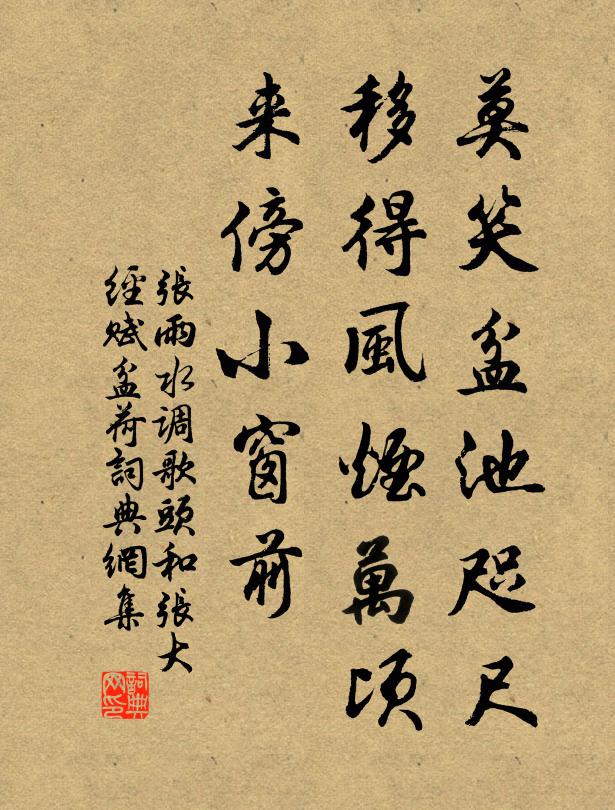 莫笑盆池咫尺
移得風煙萬頃
来傍小窗前
張雨水调歌頭和張大
經赋盆荷詞典網集
詞典
网印